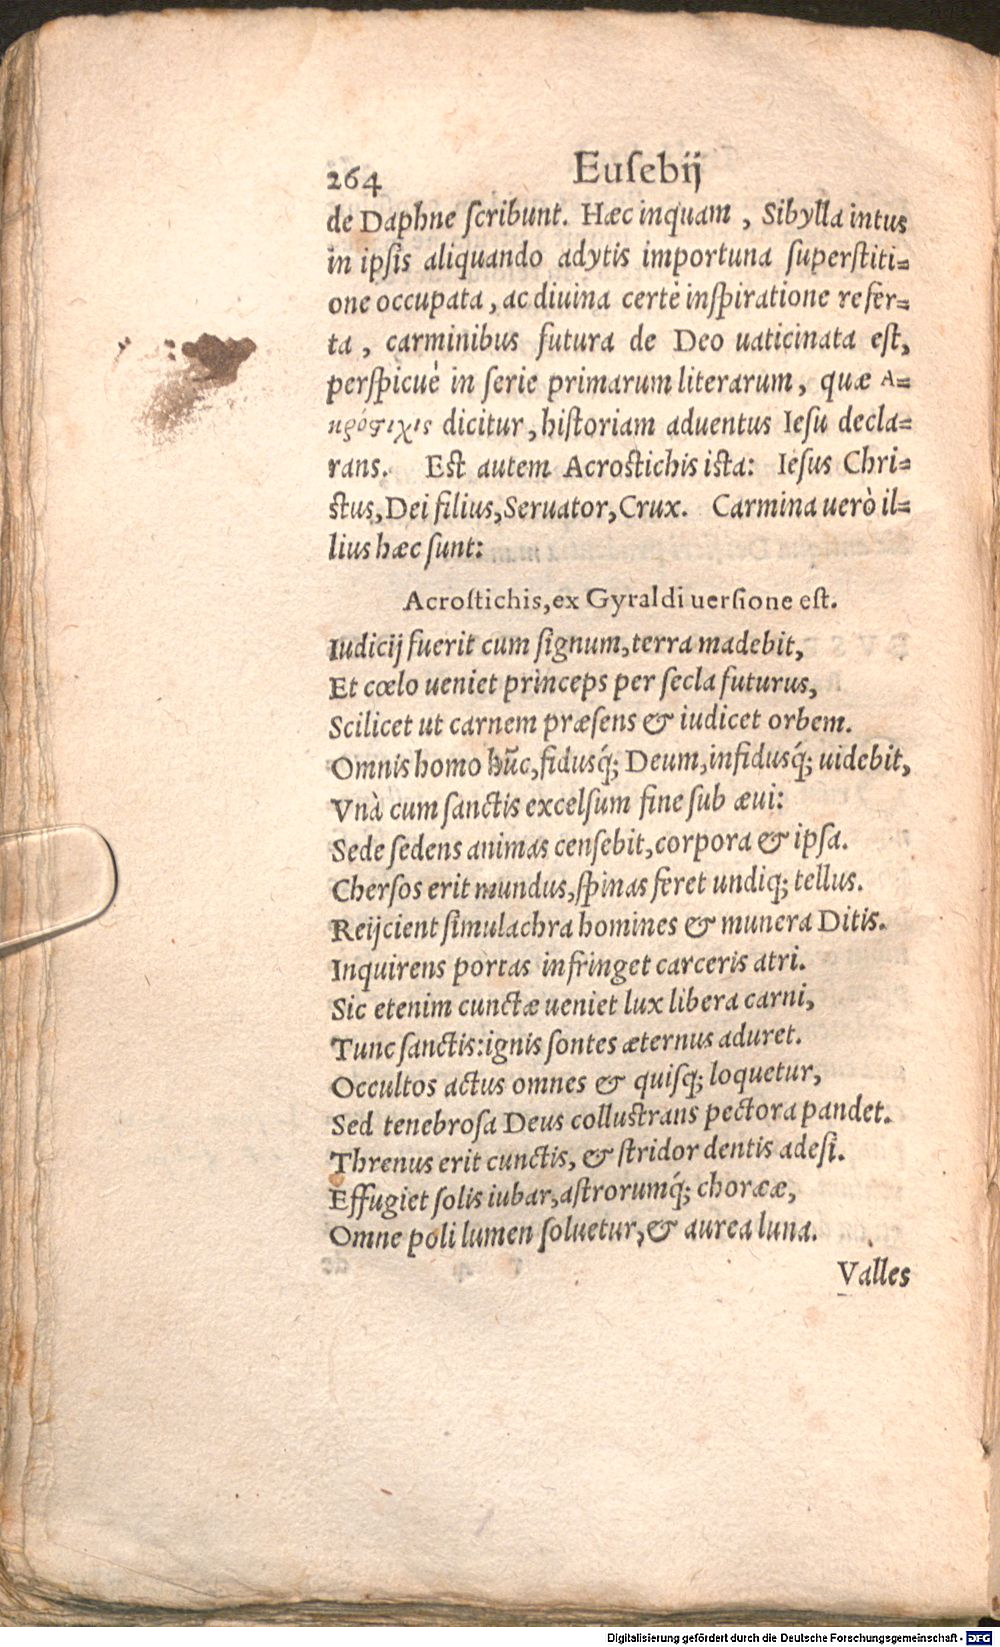 264 Euſebij
de Daphne ſcribunt. Hæc inquam, Sibylla intus
in ipſis aliquando adytis importuna ſuperſtiti=
one occupata, ac diuina certè inſpiratione refer=
ta, carminibus futura de Deo uaticinata eſt,
perſpicuè in ſerie primarum literarum, quæ Α=
κρόϛιχις dicitur, hiſtoriam aduentus Ieſu decla=
rans. Eſt autem Acroſtichis iſta: Ieſus Chri=
ſtus, Dei filius, Seruator, Crux. Carmina uerò il=
lius hæc ſunt:
Acroſtichis, ex Gyraldi uerſione eſt.
Iudicij fuerit cum ſignum, terra madebit,
Et cœlo ueniet princeps per ſecla futurus,
Scilicet ut carnem præſens & iudicet orbem.
Omnis homo hūc, fidusq́; Deum, infidusq́; uidebit,
Vnà cum ſanctis excelſum fine ſub æui:
Sede ſedens animas cenſebit, corpora & ipſa.
Cherſos erit mundus, ſpinas feret undiq; tellus.
Reijcient ſimulachra homines & munera Ditis.
Inquirens portas infringet carceris atri.
Sic etenim cunctæ ueniet lux libera carni,
Tunc ſanctis: ignis ſontes æternus aduret.
Occultos actus omnes & quiſq; loquetur,
Sed tenebroſa Deus colluſtrans pectora pandet.
Threnus erit cunctis, & ſtridor dentis adeſi.
Effugiet ſolis iubar, aſtrorumq́; choreæ,
Omne poli lumen ſoluetur, & aurea luna.
Valles
Digitalisierung gefördert durch die Deutsche Forschungsgemeinschaft - DFG